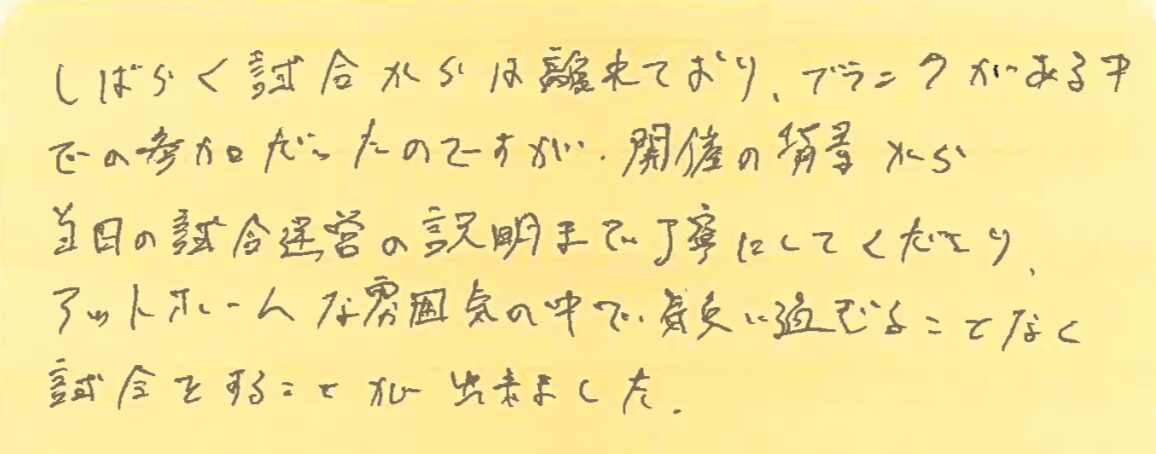 しばらく試合からは離れており、ブランクがある中
での参加だったのですが、開催の背景から
当日の試合運営の説明まで丁寧にしてくださり、
アットホームな雰囲気の中で、気負い過ぎることなく
試合をすることが出来ました。